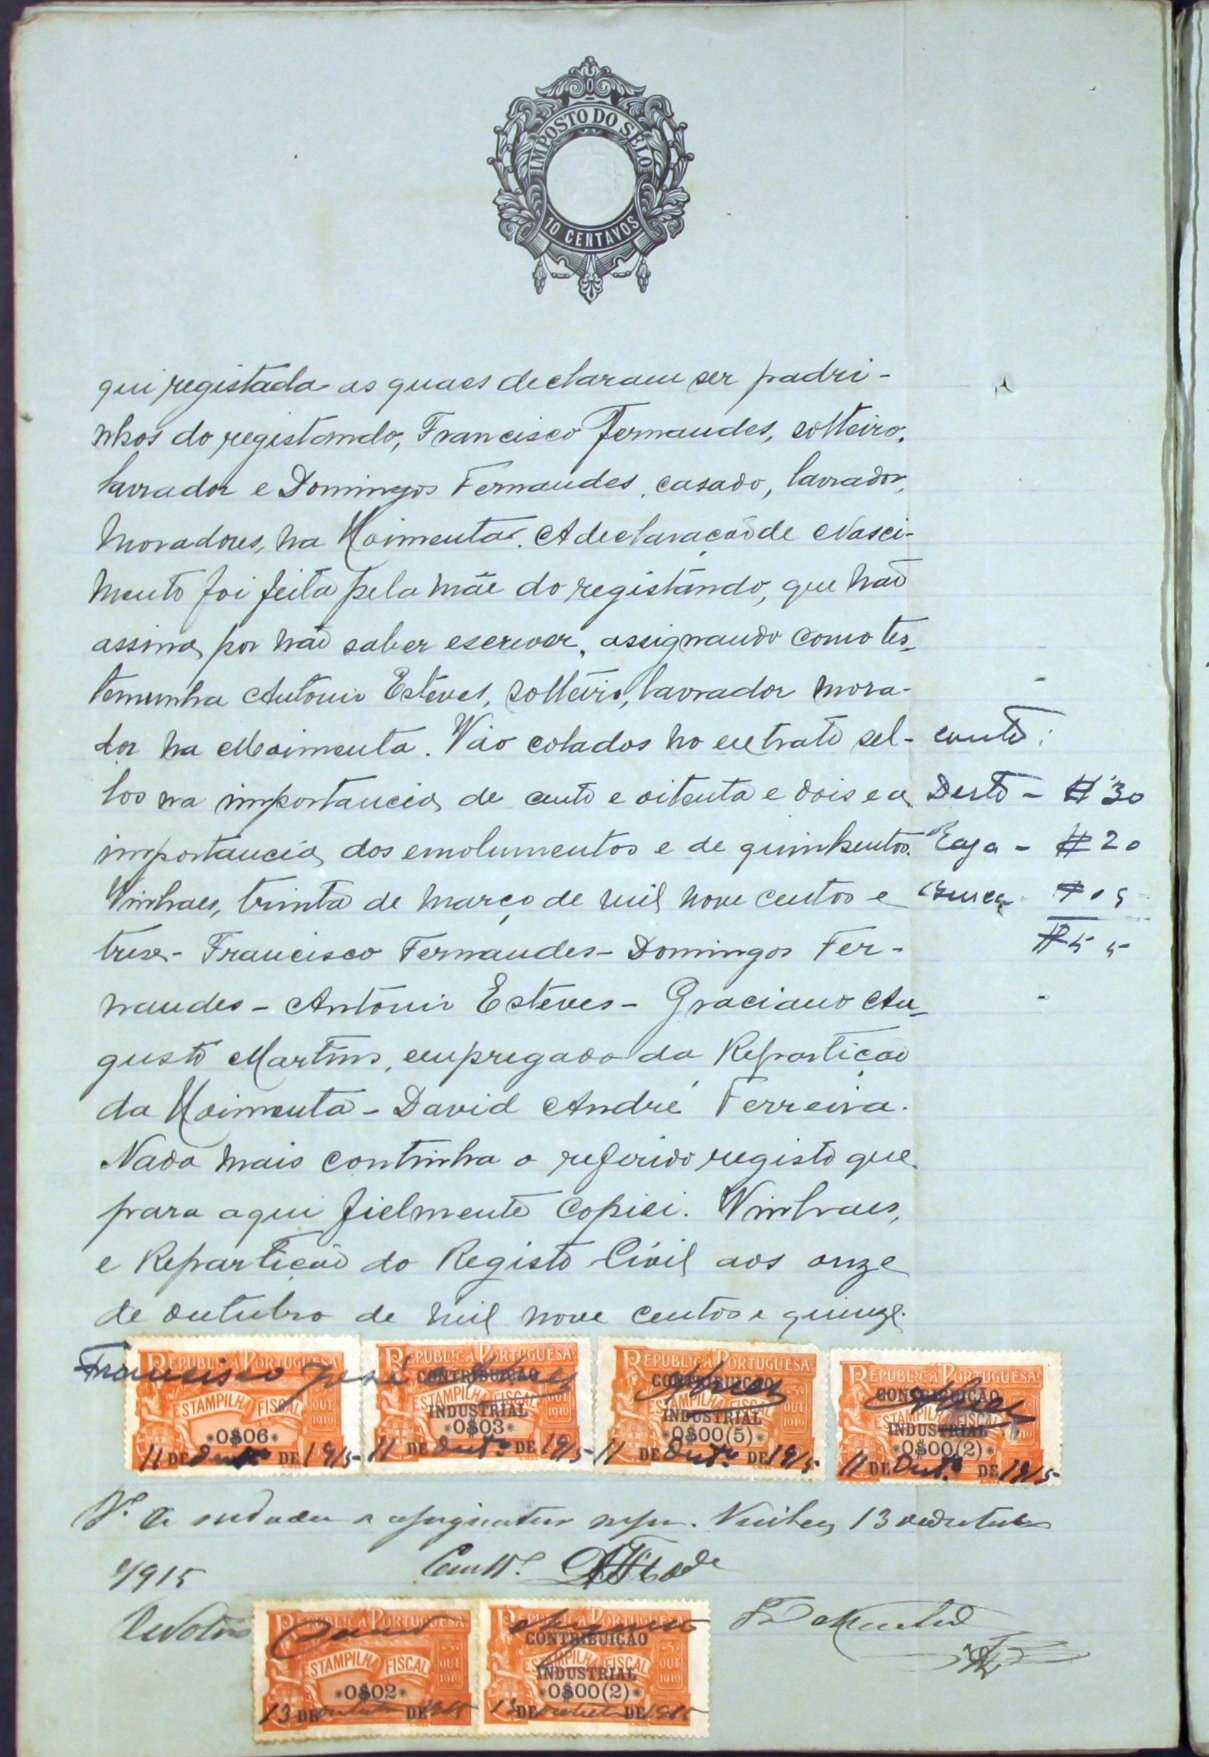 IMPOSTO DO SELO
10 CENTAVOS
qui registada as quaes declaram ser padri-
nhos do registando, Francisco Fernandes, solteiro,
lavrador e Domingos Fernandes, casado, lavrador,
moradores, na Moimenta. A declaração de Nasci-
mento foi feita pela mãe do registando, que não
assina, por não saber escrever, assignando como tes-
temunha Antonio Esteves, solteiro, lavrador mora-
dor na Moimenta. Vão colados no extrato sel-
los na importancia de cento e oitenta e dois e a
importancia dos emolumentos e de quinhentos.
Vinhaes, trinta de março de mil nove centos e
trese - Francisco Fernandes - Domingos Fer-
nandes - Antonio Esteves - Graciano Au-
gusto Martins, empregado da Repartição
da Moimenta - David André Ferreira.
Nada mais continha o referido registo que
para aqui fielmente copiei. Vinhaes,
e Repartição do Registo Civil aos onze
de outubro de mil nove centos e quinze.
conta:
Desto - $30
Raza - $20
Busca $05
$55
Francisco José
REPUBLICA PORTUGUESA
ESTAMPILHA FISCAL
*0$06*
11 DE Outº DE 1915
REPUBLICA PORTUGUESA
CONTRIBUIÇÃO
ESTAMPILHA FISCAL
INDUSTRIAL
*0$03*
11 DE Outº DE 1915
REPUBLICA PORTUGUESA
CONTRIBUIÇÃO
ESTAMPILHA FISCAL
INDUSTRIAL
*0$00(5)*
11 DE Outº DE 1915
REPUBLICA PORTUGUESA
CONTRIBUIÇÃO
ESTAMPILHA FISCAL
INDUSTRIAL
*0$00(2)*
11 DE Outº DE 1915
a 13 de outubro
1915
REPUBLICA PORTUGUESA
ESTAMPILHA FISCAL
*0$02*
13 DE outubro DE 1915
REPUBLICA PORTUGUESA
CONTRIBUIÇÃO
ESTAMPILHA FISCAL
INDUSTRIAL
*0$00(2)*
13 DE outubro DE 1915